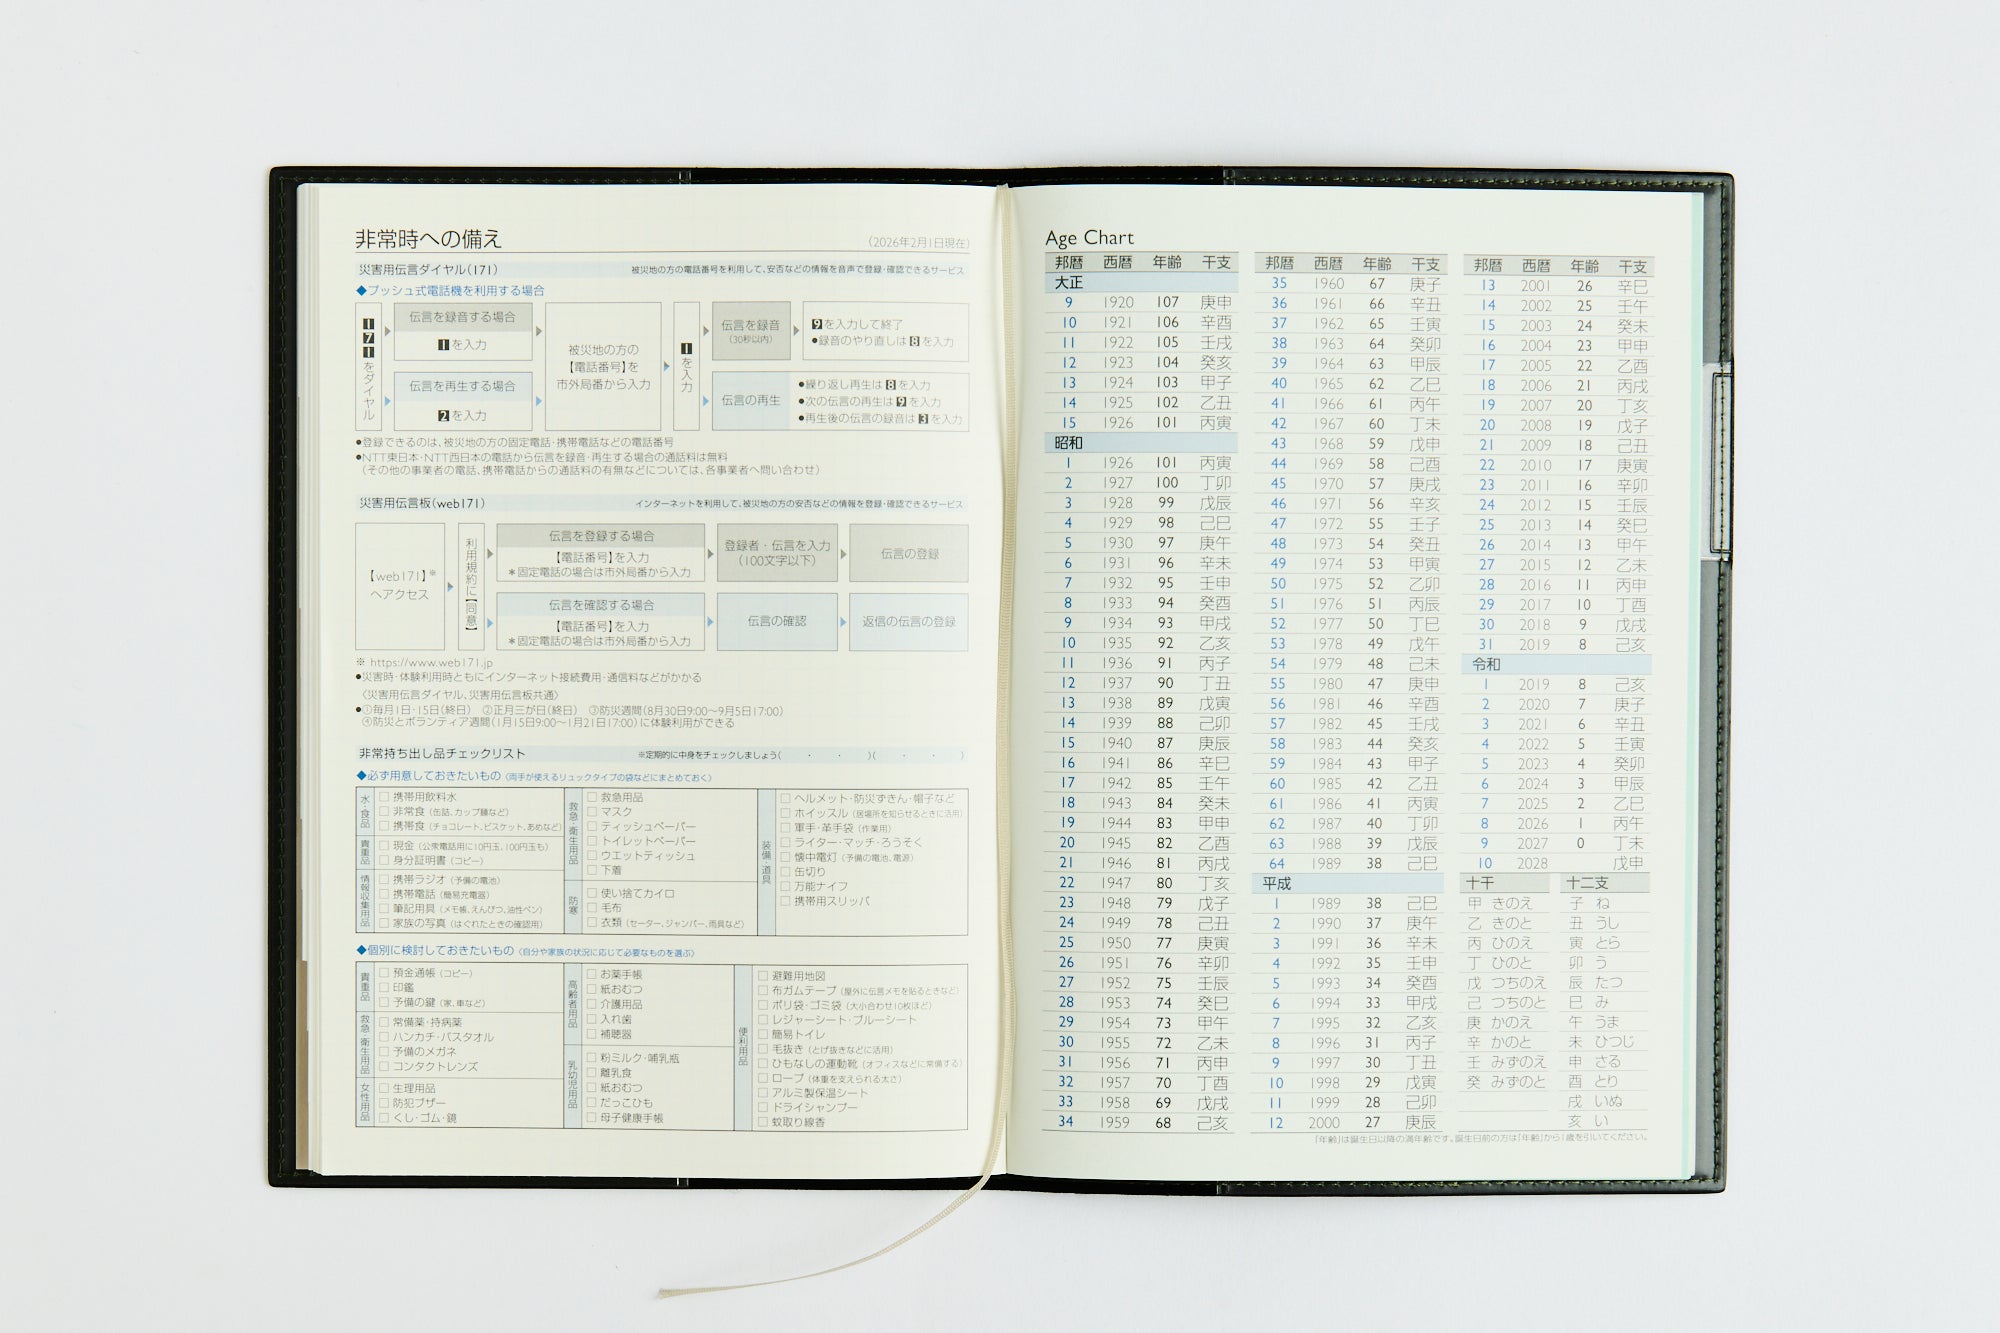 非常時への備え
（2026年2月1日現在）
災害用伝言ダイヤル（171）
被災地の方の電話番号を利用して、安否などの情報を音声で登録・確認できるサービス
◆プッシュ式電話機を利用する場合
171をダイヤル
伝言を録音する場合
1を入力
伝言を再生する場合
2を入力
被災地の方の
【電話番号】を
市外局番から入力
1を入力
伝言を録音
（30秒以内）
9を入力して終了
●録音のやり直しは8を入力
伝言の再生
●繰り返し再生は8を入力
●次の伝言の再生は9を入力
●再生後の伝言の録音は3を入力
●登録できるのは、被災地の方の固定電話・携帯電話などの電話番号
●NTT東日本・NTT西日本の電話から伝言を録音・再生する場合の通話料は無料
（その他の事業者の電話、携帯電話からの通話料の有無などについては、各事業者へ問い合わせ）
災害用伝言板（web171）
インターネットを利用して、被災地の方の安否などの情報を登録・確認できるサービス
【web171】※
へアクセス
利用規約に【同意】
伝言を登録する場合
【電話番号】を入力
＊固定電話の場合は市外局番から入力
登録者・伝言を入力
（100文字以下）
伝言の登録
伝言を確認する場合
【電話番号】を入力
＊固定電話の場合は市外局番から入力
伝言の確認
返信の伝言の登録
※ https://www.web171.jp
●災害時・体験利用時ともにインターネット接続費用・通信料などがかかる
〈災害用伝言ダイヤル、災害用伝言板共通〉
●①毎月1日・15日（終日） ②正月三が日（終日） ③防災週間（8月30日9:00〜9月5日17:00）
④防災とボランティア週間（1月15日9:00〜1月21日17:00）に体験利用ができる
非常持ち出し品チェックリスト
※定期的に中身をチェックしましょう（　・　・　）（　・　・　）
◆必ず用意しておきたいもの（両手が使えるリュックタイプの袋などにまとめておく）
水・食品
□携帯用飲料水
□非常食（缶詰、カップ麺など）
□携帯食（チョコレート、ビスケット、あめなど）
貴重品
□現金（公衆電話用に10円玉、100円玉も）
□身分証明書（コピー）
情報収集用品
□携帯ラジオ（予備の電池）
□携帯電話（簡易充電器）
□筆記用具（メモ帳、えんぴつ、油性ペン）
□家族の写真（はぐれたときの確認用）
救急・衛生用品
□救急用品
□マスク
□ティッシュペーパー
□トイレットペーパー
□ウエットティッシュ
□下着
防寒
□使い捨てカイロ
□毛布
□衣類（セーター、ジャンパー、雨具など）
装備・道具
□ヘルメット・防災ずきん・帽子など
□ホイッスル（居場所を知らせるときに活用）
□軍手・革手袋（作業用）
□ライター・マッチ・ろうそく
□懐中電灯（予備の電池、電源）
□缶切り
□万能ナイフ
□携帯用スリッパ
◆個別に検討しておきたいもの（自分や家族の状況に応じて必要なものを選ぶ）
貴重品
□預金通帳（コピー）
□印鑑
□予備の鍵（家、車など）
救急・衛生用品
□常備薬・持病薬
□ハンカチ・バスタオル
□予備のメガネ
□コンタクトレンズ
女性用品
□生理用品
□防犯ブザー
□くし・ゴム・鏡
高齢者用品
□お薬手帳
□紙おむつ
□介護用品
□入れ歯
□補聴器
乳幼児用品
□粉ミルク・哺乳瓶
□離乳食
□紙おむつ
□だっこひも
□母子健康手帳
便利用品
□避難用地図
□布ガムテープ（屋外に伝言メモを貼るときなど）
□ポリ袋・ゴミ袋（大小合わせ10枚ほど）
□レジャーシート・ブルーシート
□簡易トイレ
□毛抜き（とげ抜きなどに活用）
□ひもなしの運動靴（オフィスなどに常備する）
□ロープ（体重を支えられる太さ）
□アルミ製保温シート
□ドライシャンプー
□蚊取り線香
Age Chart
邦暦 西暦 年齢 干支
大正
9 1920 107 庚申
10 1921 106 辛酉
11 1922 105 壬戌
12 1923 104 癸亥
13 1924 103 甲子
14 1925 102 乙丑
15 1926 101 丙寅
昭和
1 1926 101 丙寅
2 1927 100 丁卯
3 1928 99 戊辰
4 1929 98 己巳
5 1930 97 庚午
6 1931 96 辛未
7 1932 95 壬申
8 1933 94 癸酉
9 1934 93 甲戌
10 1935 92 乙亥
11 1936 91 丙子
12 1937 90 丁丑
13 1938 89 戊寅
14 1939 88 己卯
15 1940 87 庚辰
16 1941 86 辛巳
17 1942 85 壬午
18 1943 84 癸未
19 1944 83 甲申
20 1945 82 乙酉
21 1946 81 丙戌
22 1947 80 丁亥
23 1948 79 戊子
24 1949 78 己丑
25 1950 77 庚寅
26 1951 76 辛卯
27 1952 75 壬辰
28 1953 74 癸巳
29 1954 73 甲午
30 1955 72 乙未
31 1956 71 丙申
32 1957 70 丁酉
33 1958 69 戊戌
34 1959 68 己亥
邦暦 西暦 年齢 干支
35 1960 67 庚子
36 1961 66 辛丑
37 1962 65 壬寅
38 1963 64 癸卯
39 1964 63 甲辰
40 1965 62 乙巳
41 1966 61 丙午
42 1967 60 丁未
43 1968 59 戊申
44 1969 58 己酉
45 1970 57 庚戌
46 1971 56 辛亥
47 1972 55 壬子
48 1973 54 癸丑
49 1974 53 甲寅
50 1975 52 乙卯
51 1976 51 丙辰
52 1977 50 丁巳
53 1978 49 戊午
54 1979 48 己未
55 1980 47 庚申
56 1981 46 辛酉
57 1982 45 壬戌
58 1983 44 癸亥
59 1984 43 甲子
60 1985 42 乙丑
61 1986 41 丙寅
62 1987 40 丁卯
63 1988 39 戊辰
64 1989 38 己巳
平成
1 1989 38 己巳
2 1990 37 庚午
3 1991 36 辛未
4 1992 35 壬申
5 1993 34 癸酉
6 1994 33 甲戌
7 1995 32 乙亥
8 1996 31 丙子
9 1997 30 丁丑
10 1998 29 戊寅
11 1999 28 己卯
12 2000 27 庚辰
邦暦 西暦 年齢 干支
13 2001 26 辛巳
14 2002 25 壬午
15 2003 24 癸未
16 2004 23 甲申
17 2005 22 乙酉
18 2006 21 丙戌
19 2007 20 丁亥
20 2008 19 戊子
21 2009 18 己丑
22 2010 17 庚寅
23 2011 16 辛卯
24 2012 15 壬辰
25 2013 14 癸巳
26 2014 13 甲午
27 2015 12 乙未
28 2016 11 丙申
29 2017 10 丁酉
30 2018 9 戊戌
31 2019 8 己亥
令和
1 2019 8 己亥
2 2020 7 庚子
3 2021 6 辛丑
4 2022 5 壬寅
5 2023 4 癸卯
6 2024 3 甲辰
7 2025 2 乙巳
8 2026 1 丙午
9 2027 0 丁未
10 2028 戊申
十干 十二支
甲 きのえ 子 ね
乙 きのと 丑 うし
丙 ひのえ 寅 とら
丁 ひのと 卯 う
戊 つちのえ 辰 たつ
己 つちのと 巳 み
庚 かのえ 午 うま
辛 かのと 未 ひつじ
壬 みずのえ 申 さる
癸 みずのと 酉 とり
戌 いぬ
亥 い
「年齢」は誕生日以降の満年齢です。誕生日前の方は「年齢」から1歳を引いてください。